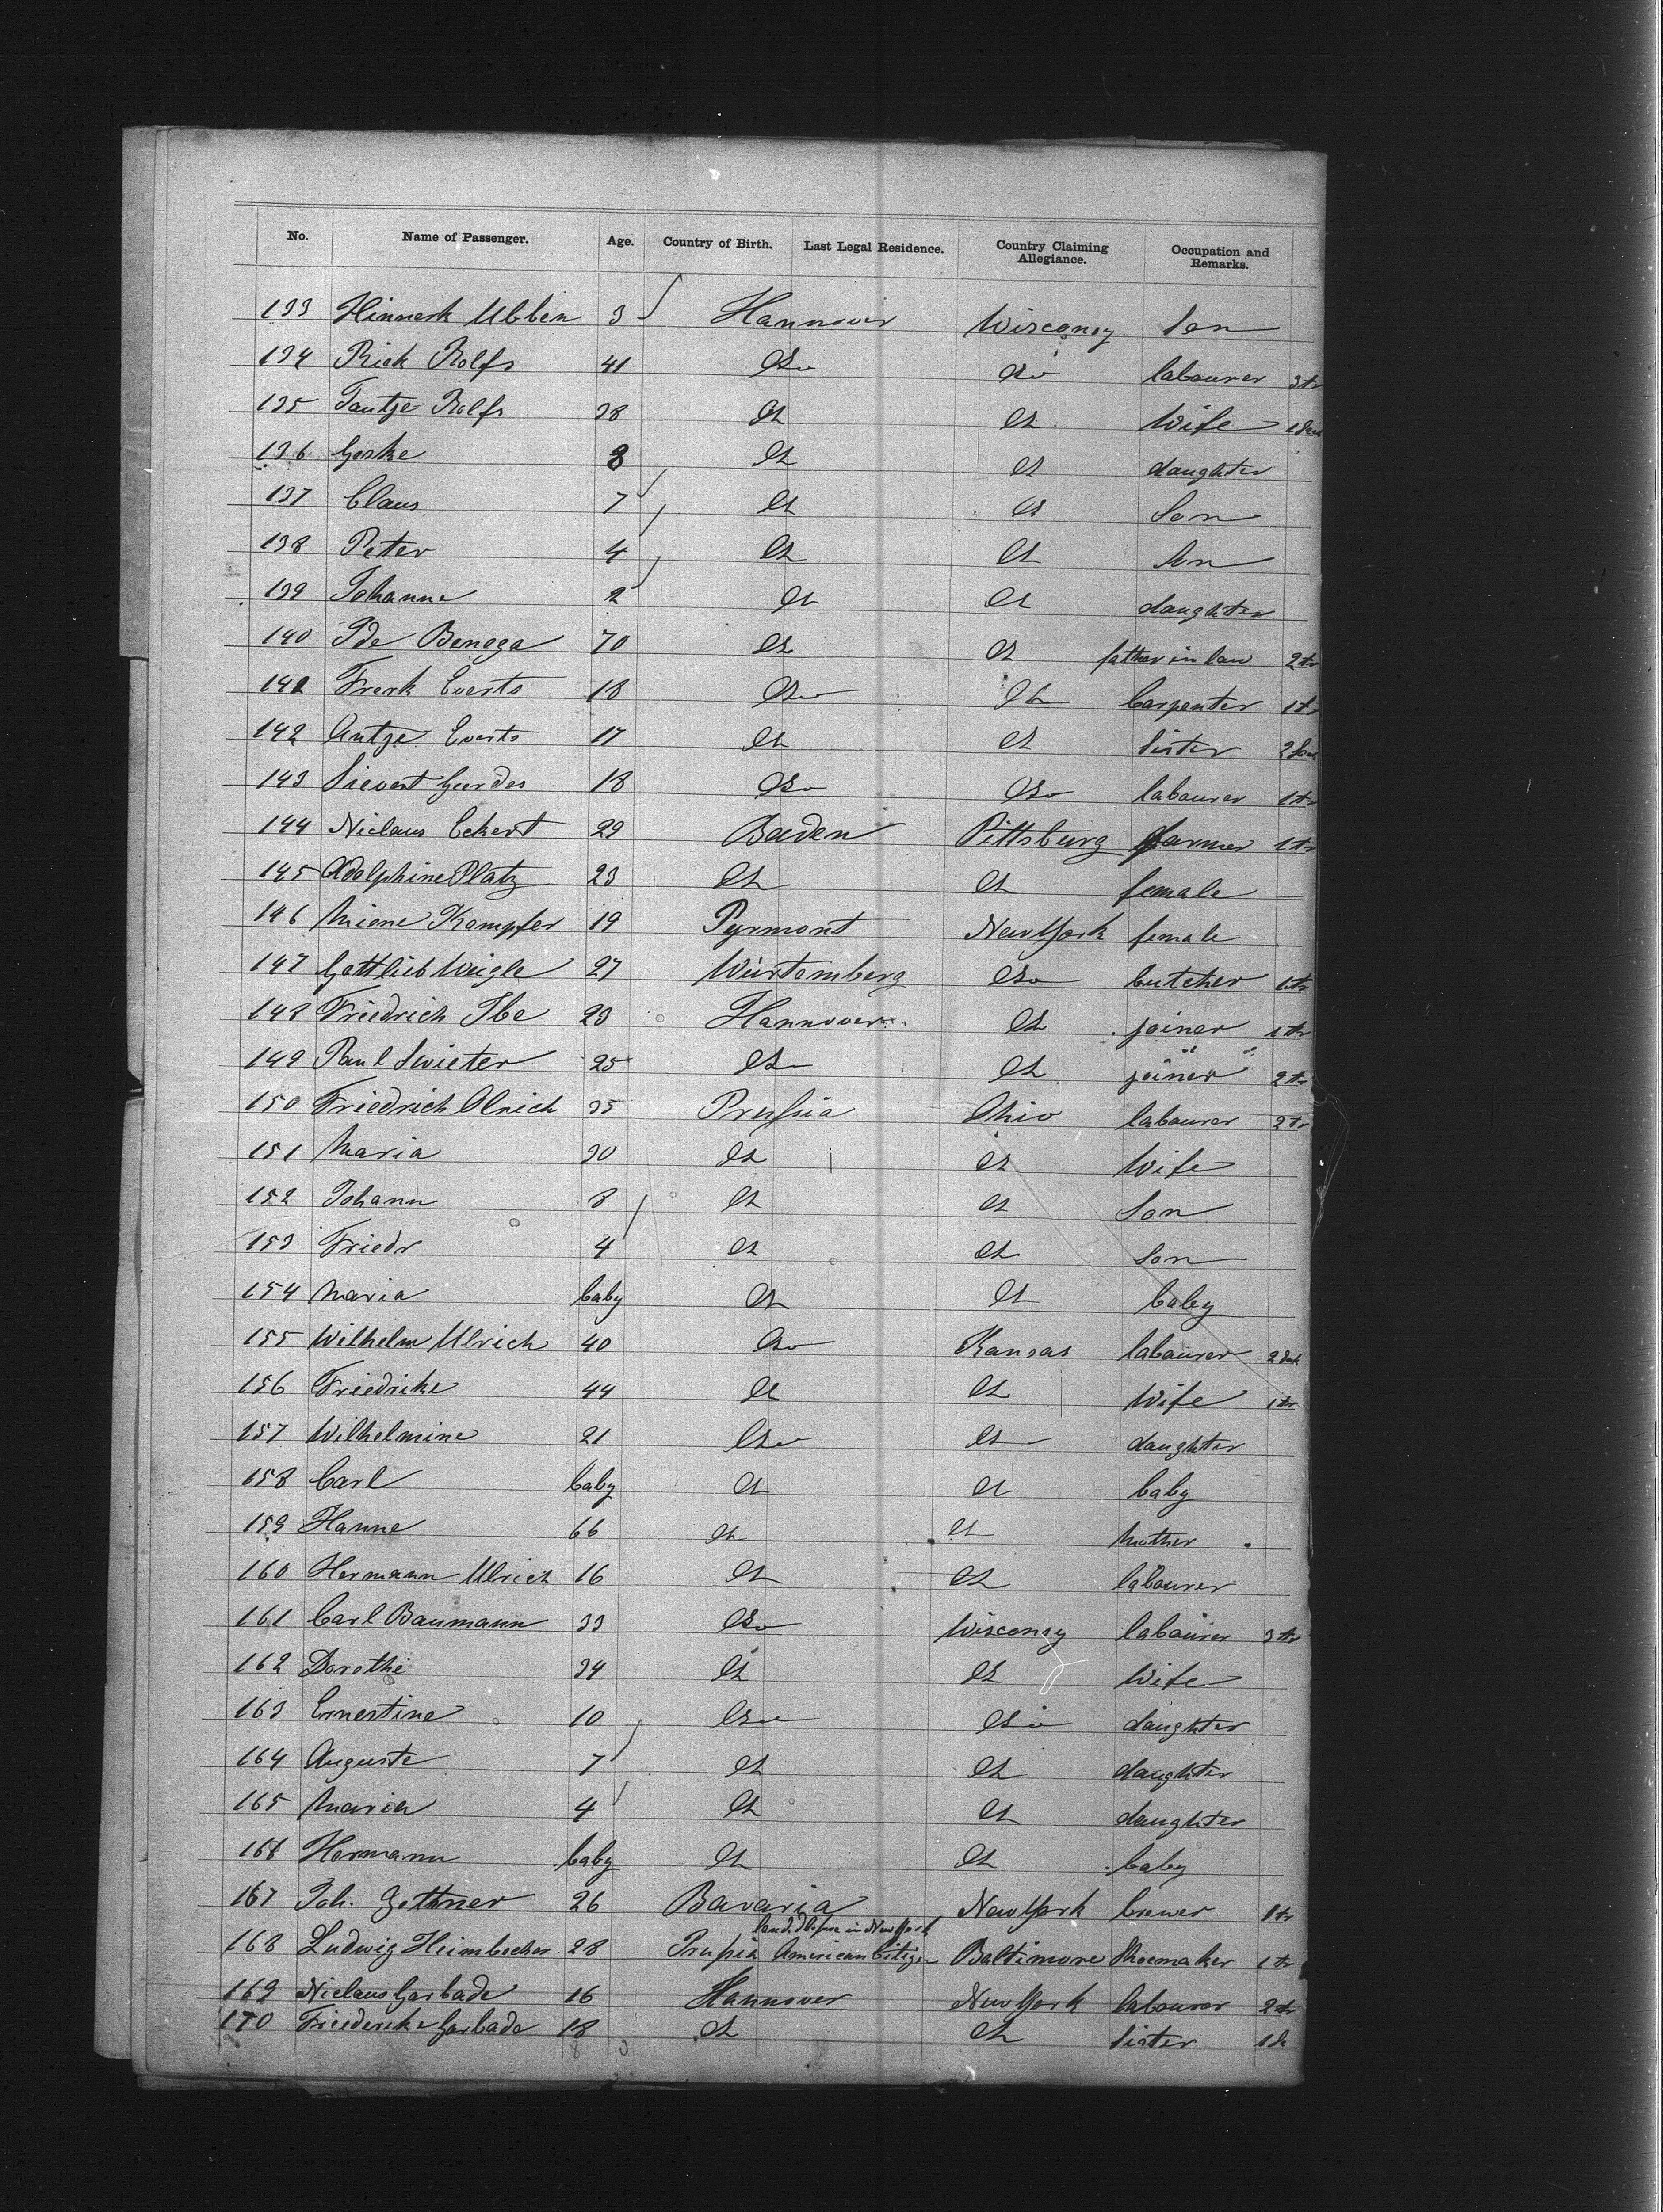 No. Name of Passenger. Age. Country of Birth. Last Legal Residence. Country Claiming Allegiance. Occupation and Remarks.
133 Hinnerk Ubben 3 Hannover Wisconsy Son
134 Rick Rolfs 41 do do labourer 3 tr
135 Tantje Rolfs 38 do do Wife
136 Geske 8 do do daughter
137 Claus 7 do do Son
138 Peter 4 do do Son
139 Johanne 2 do do daughter
140 Ide Benega 70 do do father in law 2 tr
141 Frerk Everts 18 do do Carpenter 1 tr
142 Antje Everts 17 do do Sister
143 Sievert Gerdes 18 do do labourer 1 tr
144 Niclaus Eckert 29 Baden Pittsburg farmer 1 tr
145 Adolphine Platz 23 do do female
146 Miene Kampfer 19 Pyrmont New York female
147 Gottlieb Weigle 27 Würtemberg do butcher 1 tr
148 Friedrich Ibe 23 Hannover do joiner 1 tr
149 Paul Swieter 25 do do joiner 2 tr
150 Friedrich Ulrich 35 Prussia Ohio labourer 2 tr
151 Maria 30 do do Wife
152 Johann 8 do do Son
153 Friedr 4 do do Son
154 Maria baby do do baby
155 Wilhelm Ulrich 40 do Kansas labourer
156 Friedrike 44 do do Wife 1 tr
157 Wilhelmine 21 do do daughter
158 Carl baby do do baby
159 Hanne 66 do do Mother
160 Hermann Ulrich 16 do do labourer
161 Carl Baumann 33 do Wisconsy labourer 3 tr
162 Dorothe 34 do do Wife
163 Ernestine 10 do do daughter
164 Auguste 7 do do daughter
165 Maria 4 do do daughter
166 Hermann baby do do baby
167 Joh. Gettner 26 Bavaria New York brewer 1 tr
landed before in New York
168 Ludwig Heimbecher 28 Prussia American Citizen Baltimore Shoemaker 1 tr
169 Niclaus Garbade 16 Hannover New York labourer 2 tr
170 Friederike Garbade 18 do do Sister